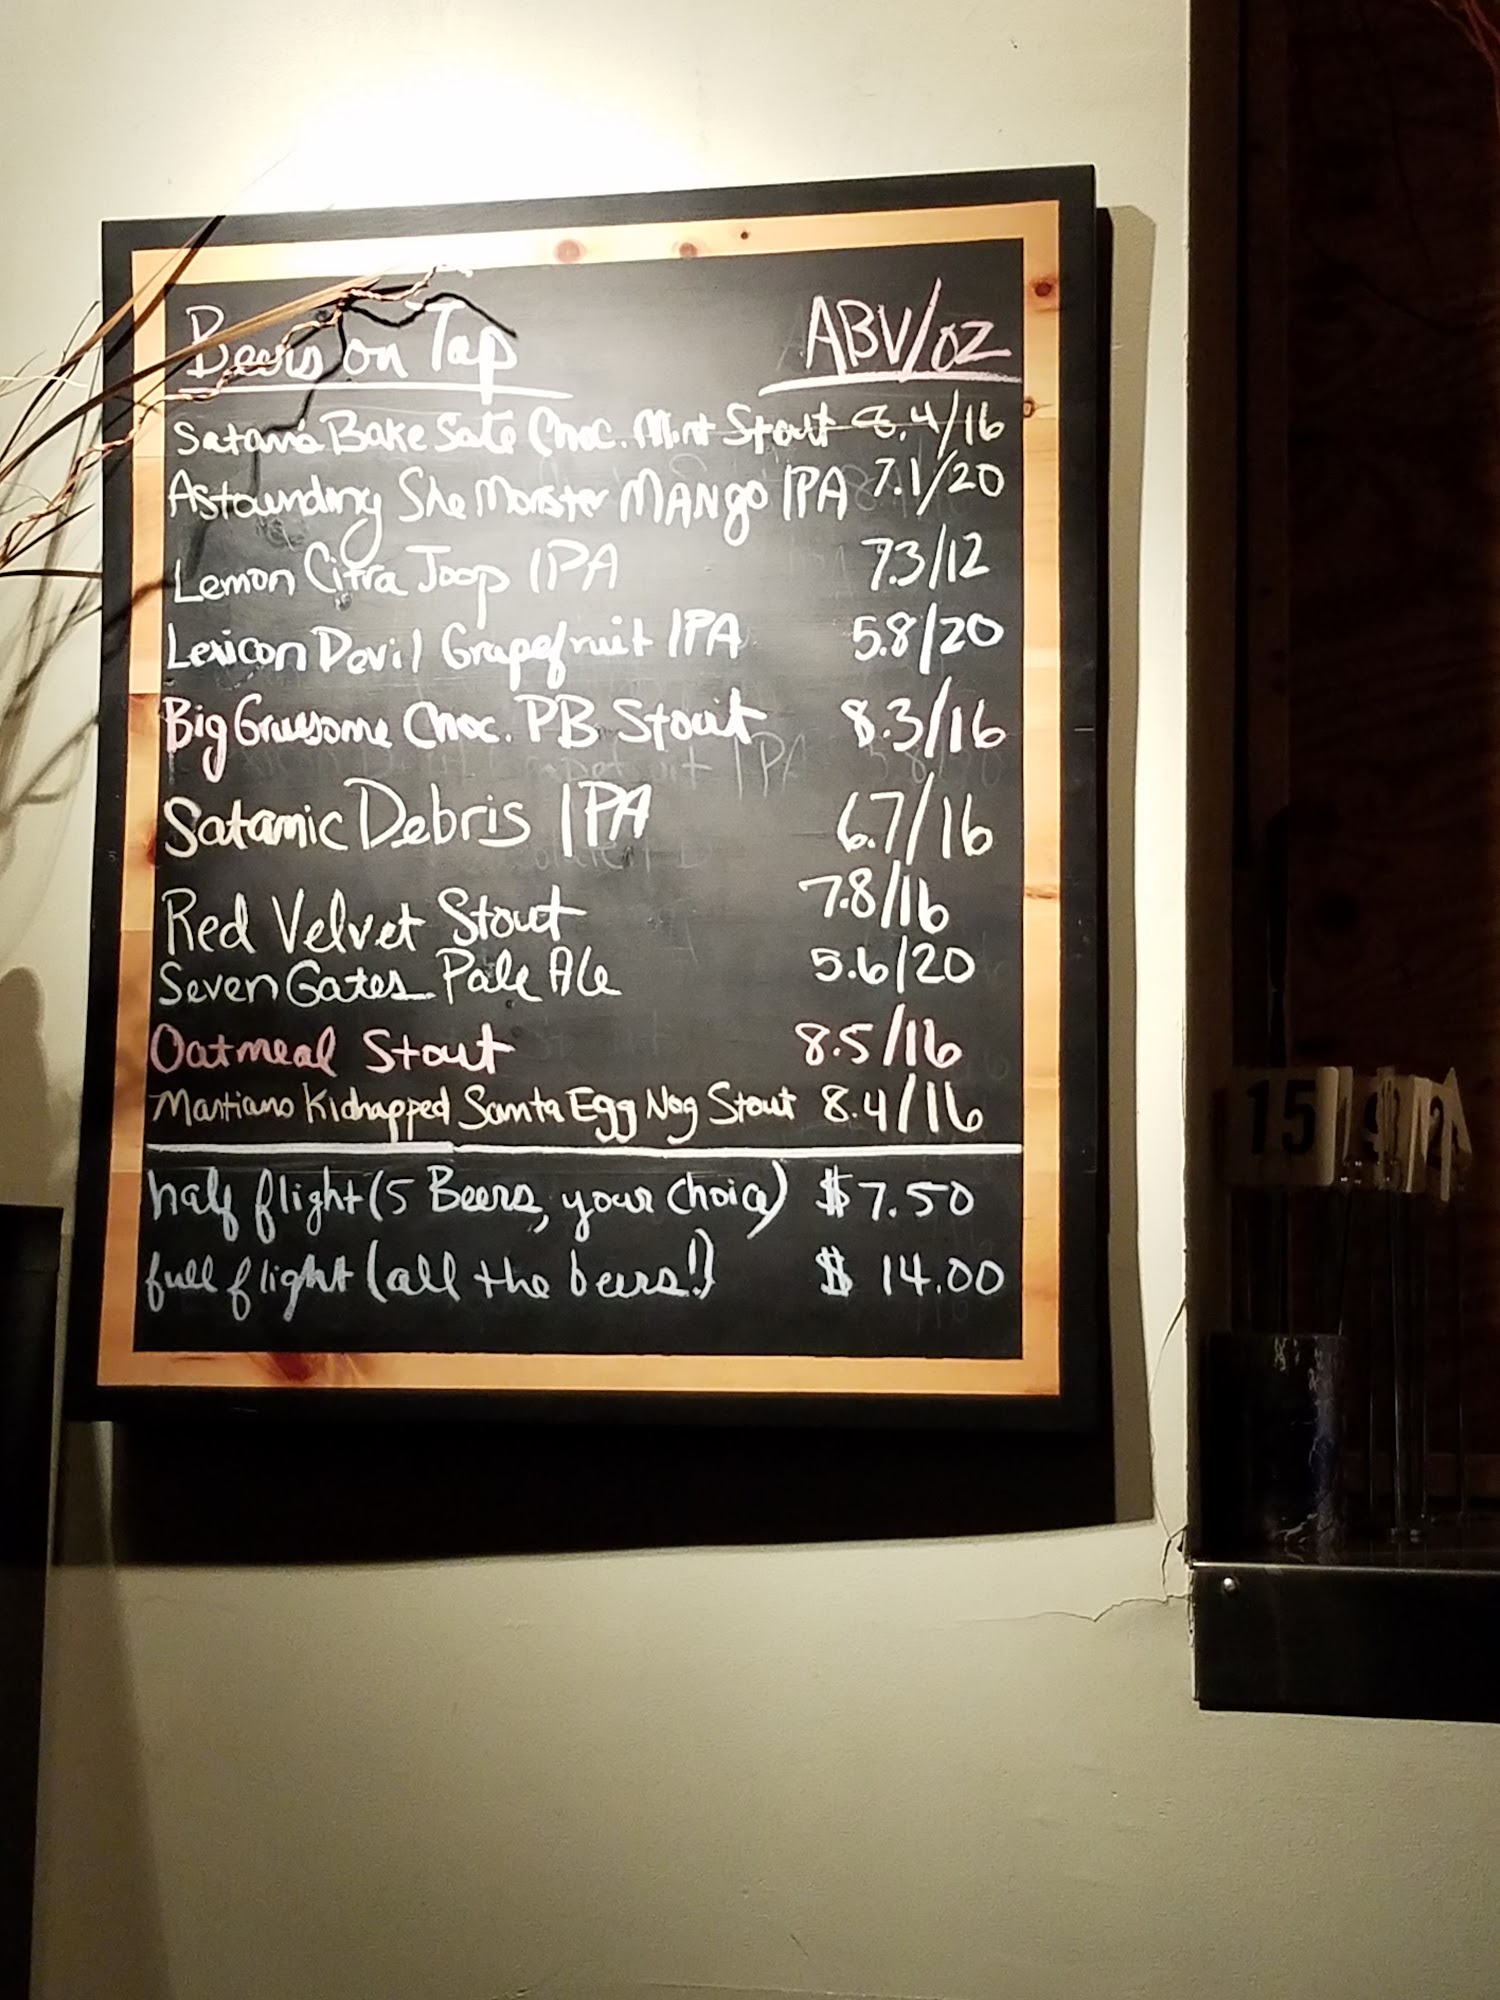 Beers on Tap ABV/oz
Satan's Bake Sale Choc. Mint Stout 8.4/16
Astounding She Monster MANgo IPA 7.1/20
Lemon Citra Joop IPA 7.3/12
Lexicon Devil Grapefruit IPA 5.8/20
Big Gruesome Choc. PB Stout 8.3/16
Satanic Debris IPA 6.7/16
Red Velvet Stout 7.8/16
Seven Gates Pale Ale 5.6/20
Oatmeal Stout 8.5/16
Martians Kidnapped Santa Egg Nog Stout 8.4/16
half flight (5 Beers, your choice) $7.50
full flight (all the beers!) $ 14.00
15